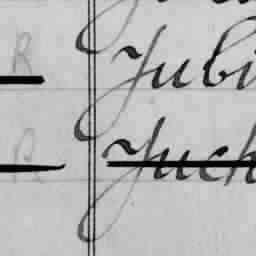 R Jubi
R Juch